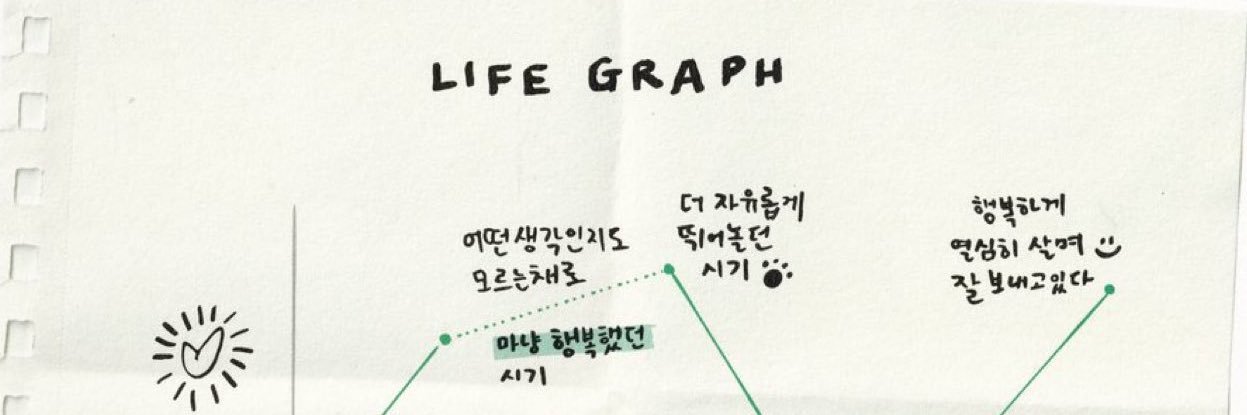 LIFE GRAPH
어떤 생각인지도
모르는채로
마냥 행복했던
시기
더 자유롭게
뛰어놀던
시기
행복하게
열심히 살며
잘 보내고있다